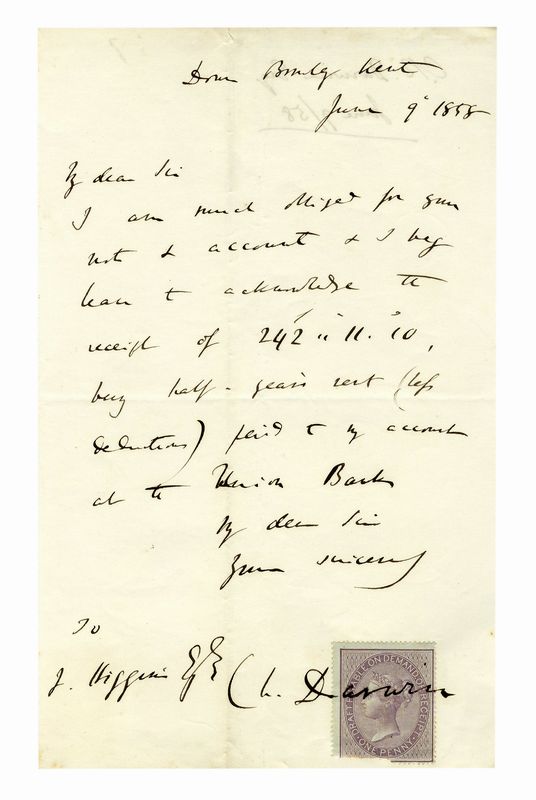 Down Bromley Kent
June 9 1858
My dear Sir
I am much obliged for your
note & account & I beg
leave to acknowledge the
receipt of 242 " 11. 10,
being half-year's rent (less
deductions) paid to my account
at the Union Bank
My dear Sir
Yours sincerely
To
J. Higgins Esq
Ch. Darwin
DRAFT PAYABLE ON DEMAND OR RECEIPT
ONE PENNY